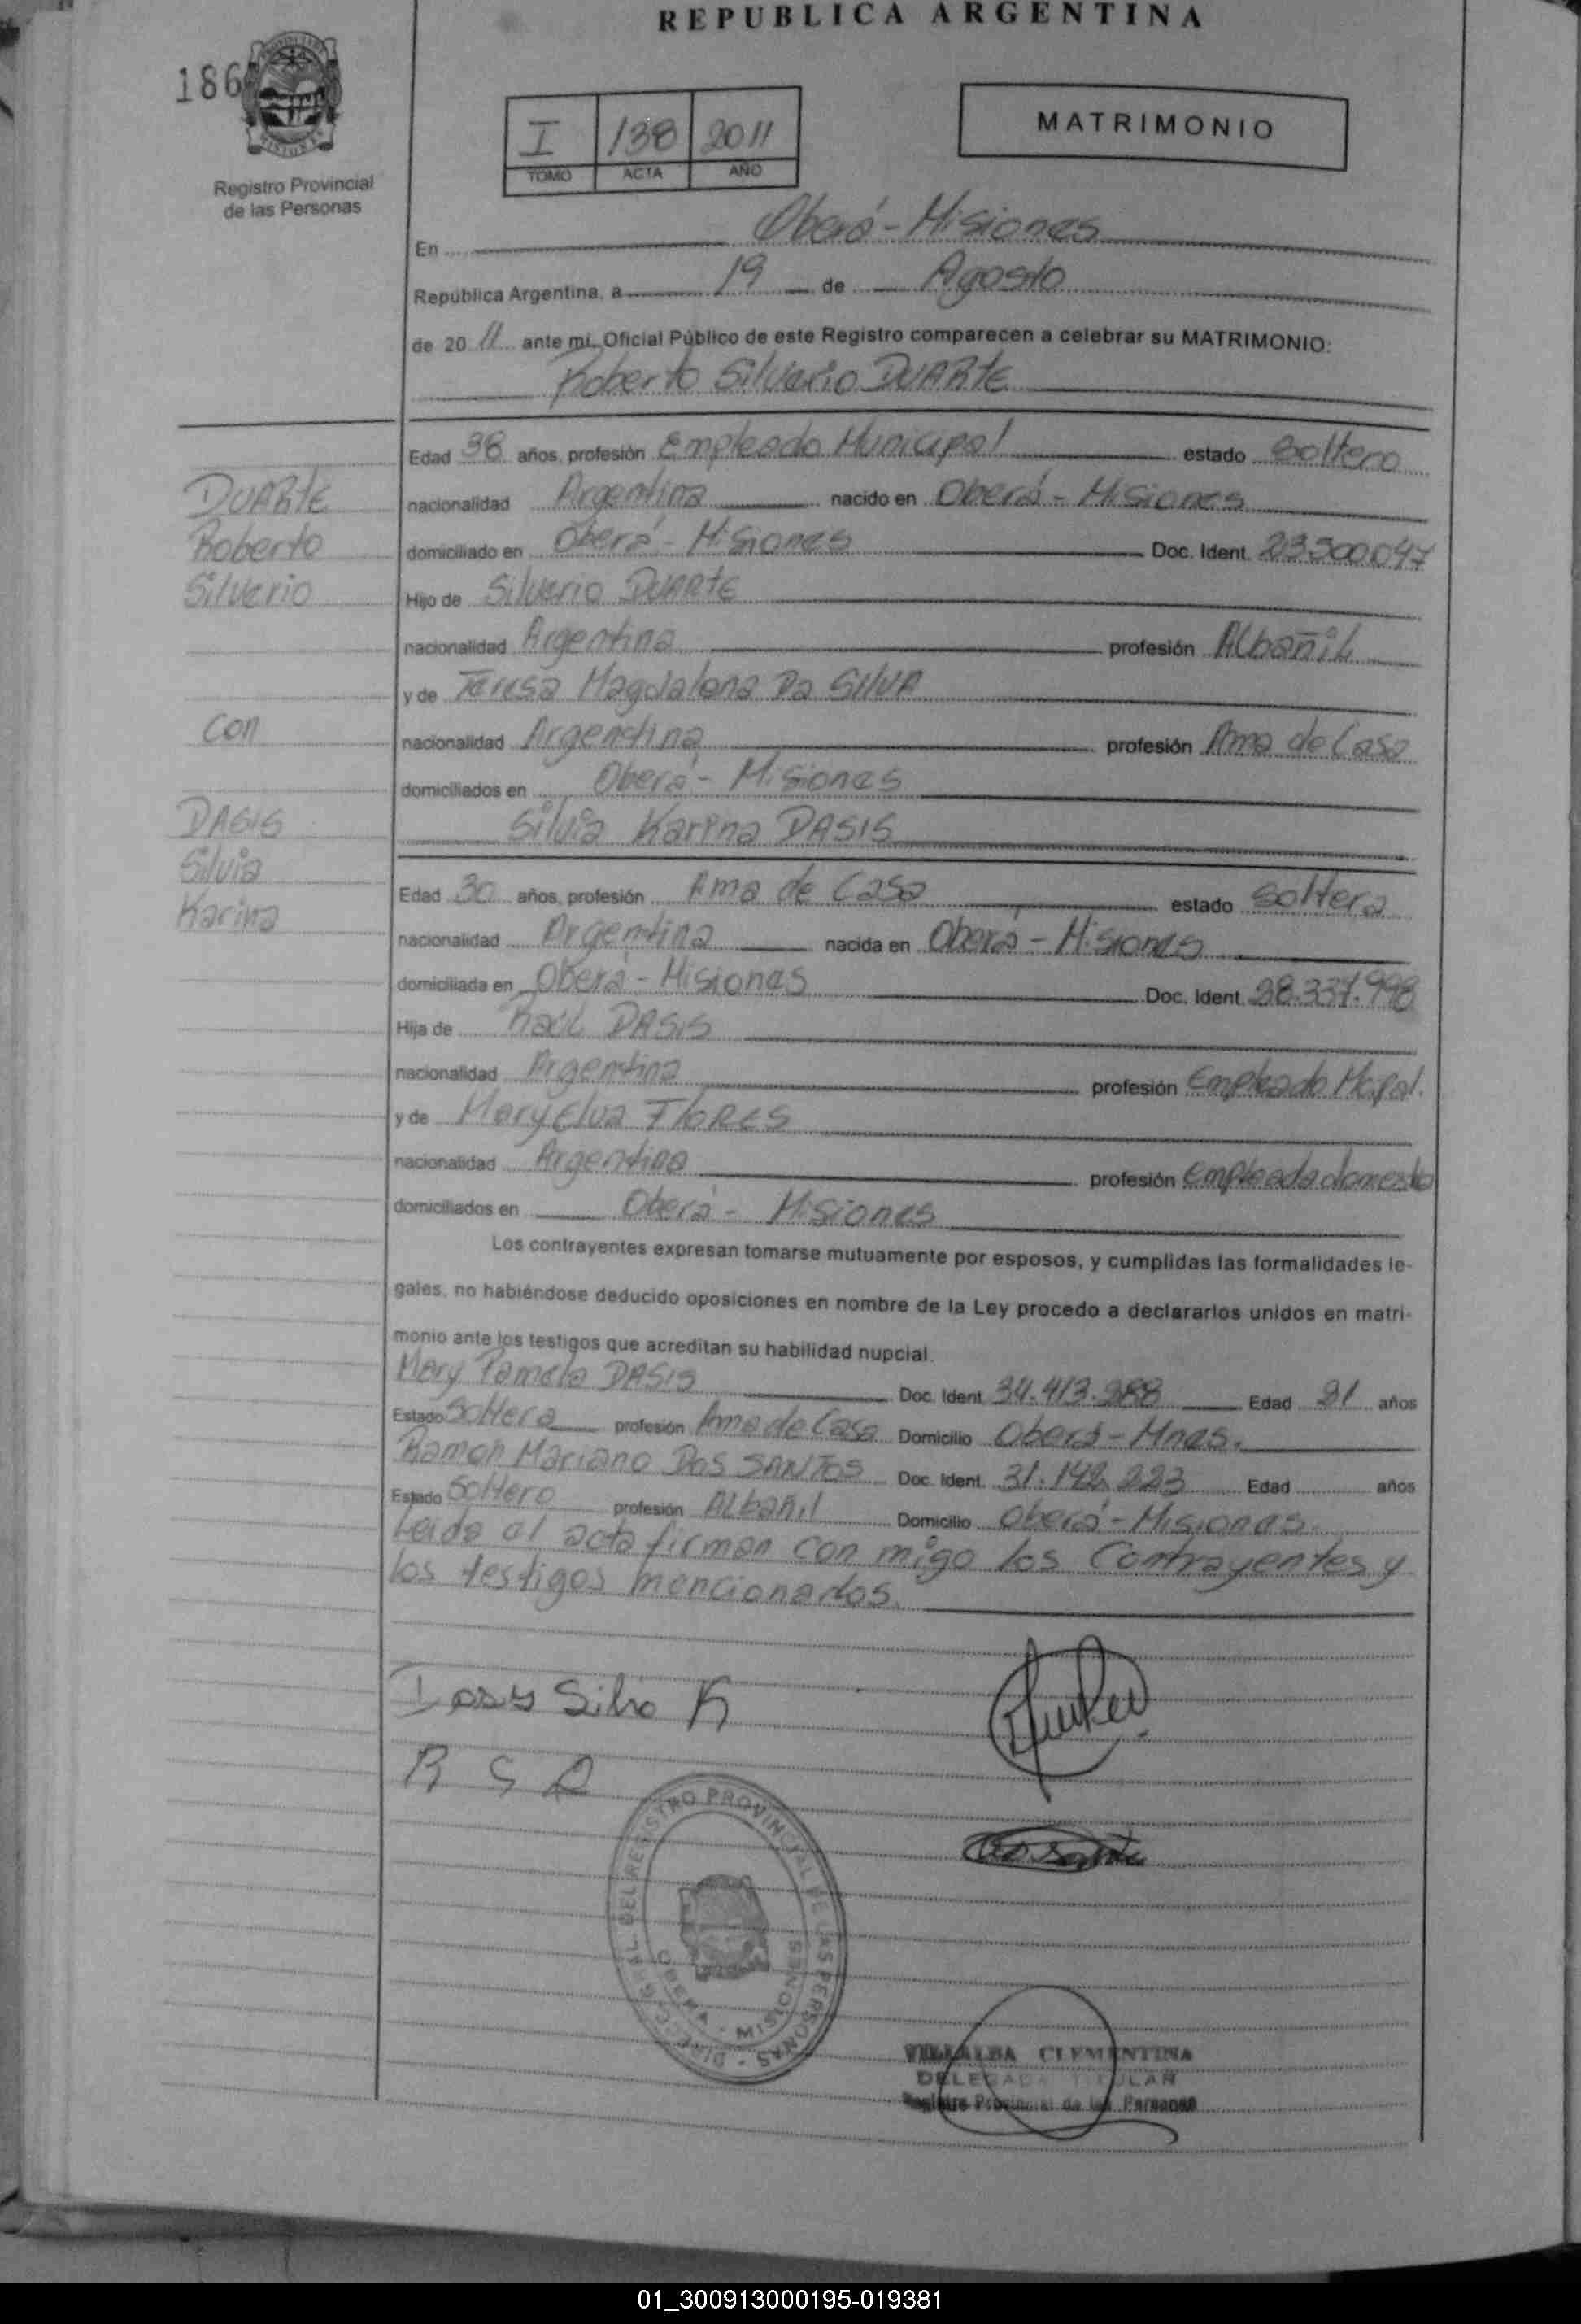 REPUBLICA ARGENTINA
186
Registro Provincial
de las Personas
I 138 2011
TOMO ACTA AÑO
MATRIMONIO
En Oberá - Misiones
República Argentina, a 19 de Agosto
de 20 11 ante mi, Oficial Público de este Registro comparecen a celebrar su MATRIMONIO:
Roberto Silverio DUARTE
Edad 38 años, profesión Empleado Municipal estado Soltero
DUARTE
Roberto
Silverio
nacionalidad Argentina nacido en Oberá - Misiones
domiciliado en Oberá - Misiones Doc. Ident. 23.300.047
Hijo de Silverio DUARTE
nacionalidad Argentina profesión Albañil
y de Teresa Magdalena Da SILVA
con
nacionalidad Argentina profesión Ama de Casa
domiciliados en Oberá - Misiones
DASIS
Silvia
Karina
Silvia Karina DASIS
Edad 30 años, profesión Ama de Casa estado Soltera
nacionalidad Argentina nacida en Oberá - Misiones
domiciliada en Oberá - Misiones Doc. Ident. 28.337.998
Hija de Raúl DASIS
nacionalidad Argentina profesión Empleado Mcpal.
y de Mary Elva FLORES
nacionalidad Argentina profesión Empleada
domiciliados en Oberá - Misiones
Los contrayentes expresan tomarse mutuamente por esposos, y cumplidas las formalidades le-
gales, no habiéndose deducido oposiciones en nombre de la Ley procedo a declararlos unidos en matri-
monio ante los testigos que acreditan su habilidad nupcial.
Mary Pamela DASIS Doc. Ident. 34.413.288 Edad 21 años
Estado Soltera profesión Ama de Casa Domicilio Oberá - Mnes.
Ramon Mariano Dos SANTOS Doc. Ident. 31.142.223 Edad años
Estado Soltero profesión Albañil Domicilio Oberá - Misiones.
Leida el acta firman con migo los Contrayentes y
los testigos mencionados.
Silvia K
R S D
DIRECC. GRAL. DEL REGISTRO PROVINCIAL DE LAS PERSONAS
OBERA - MISIONES
VILLALBA CLEMENTINA
DELEGADA TITULAR
Registro Provincial de las Personas
01_300913000195-019381